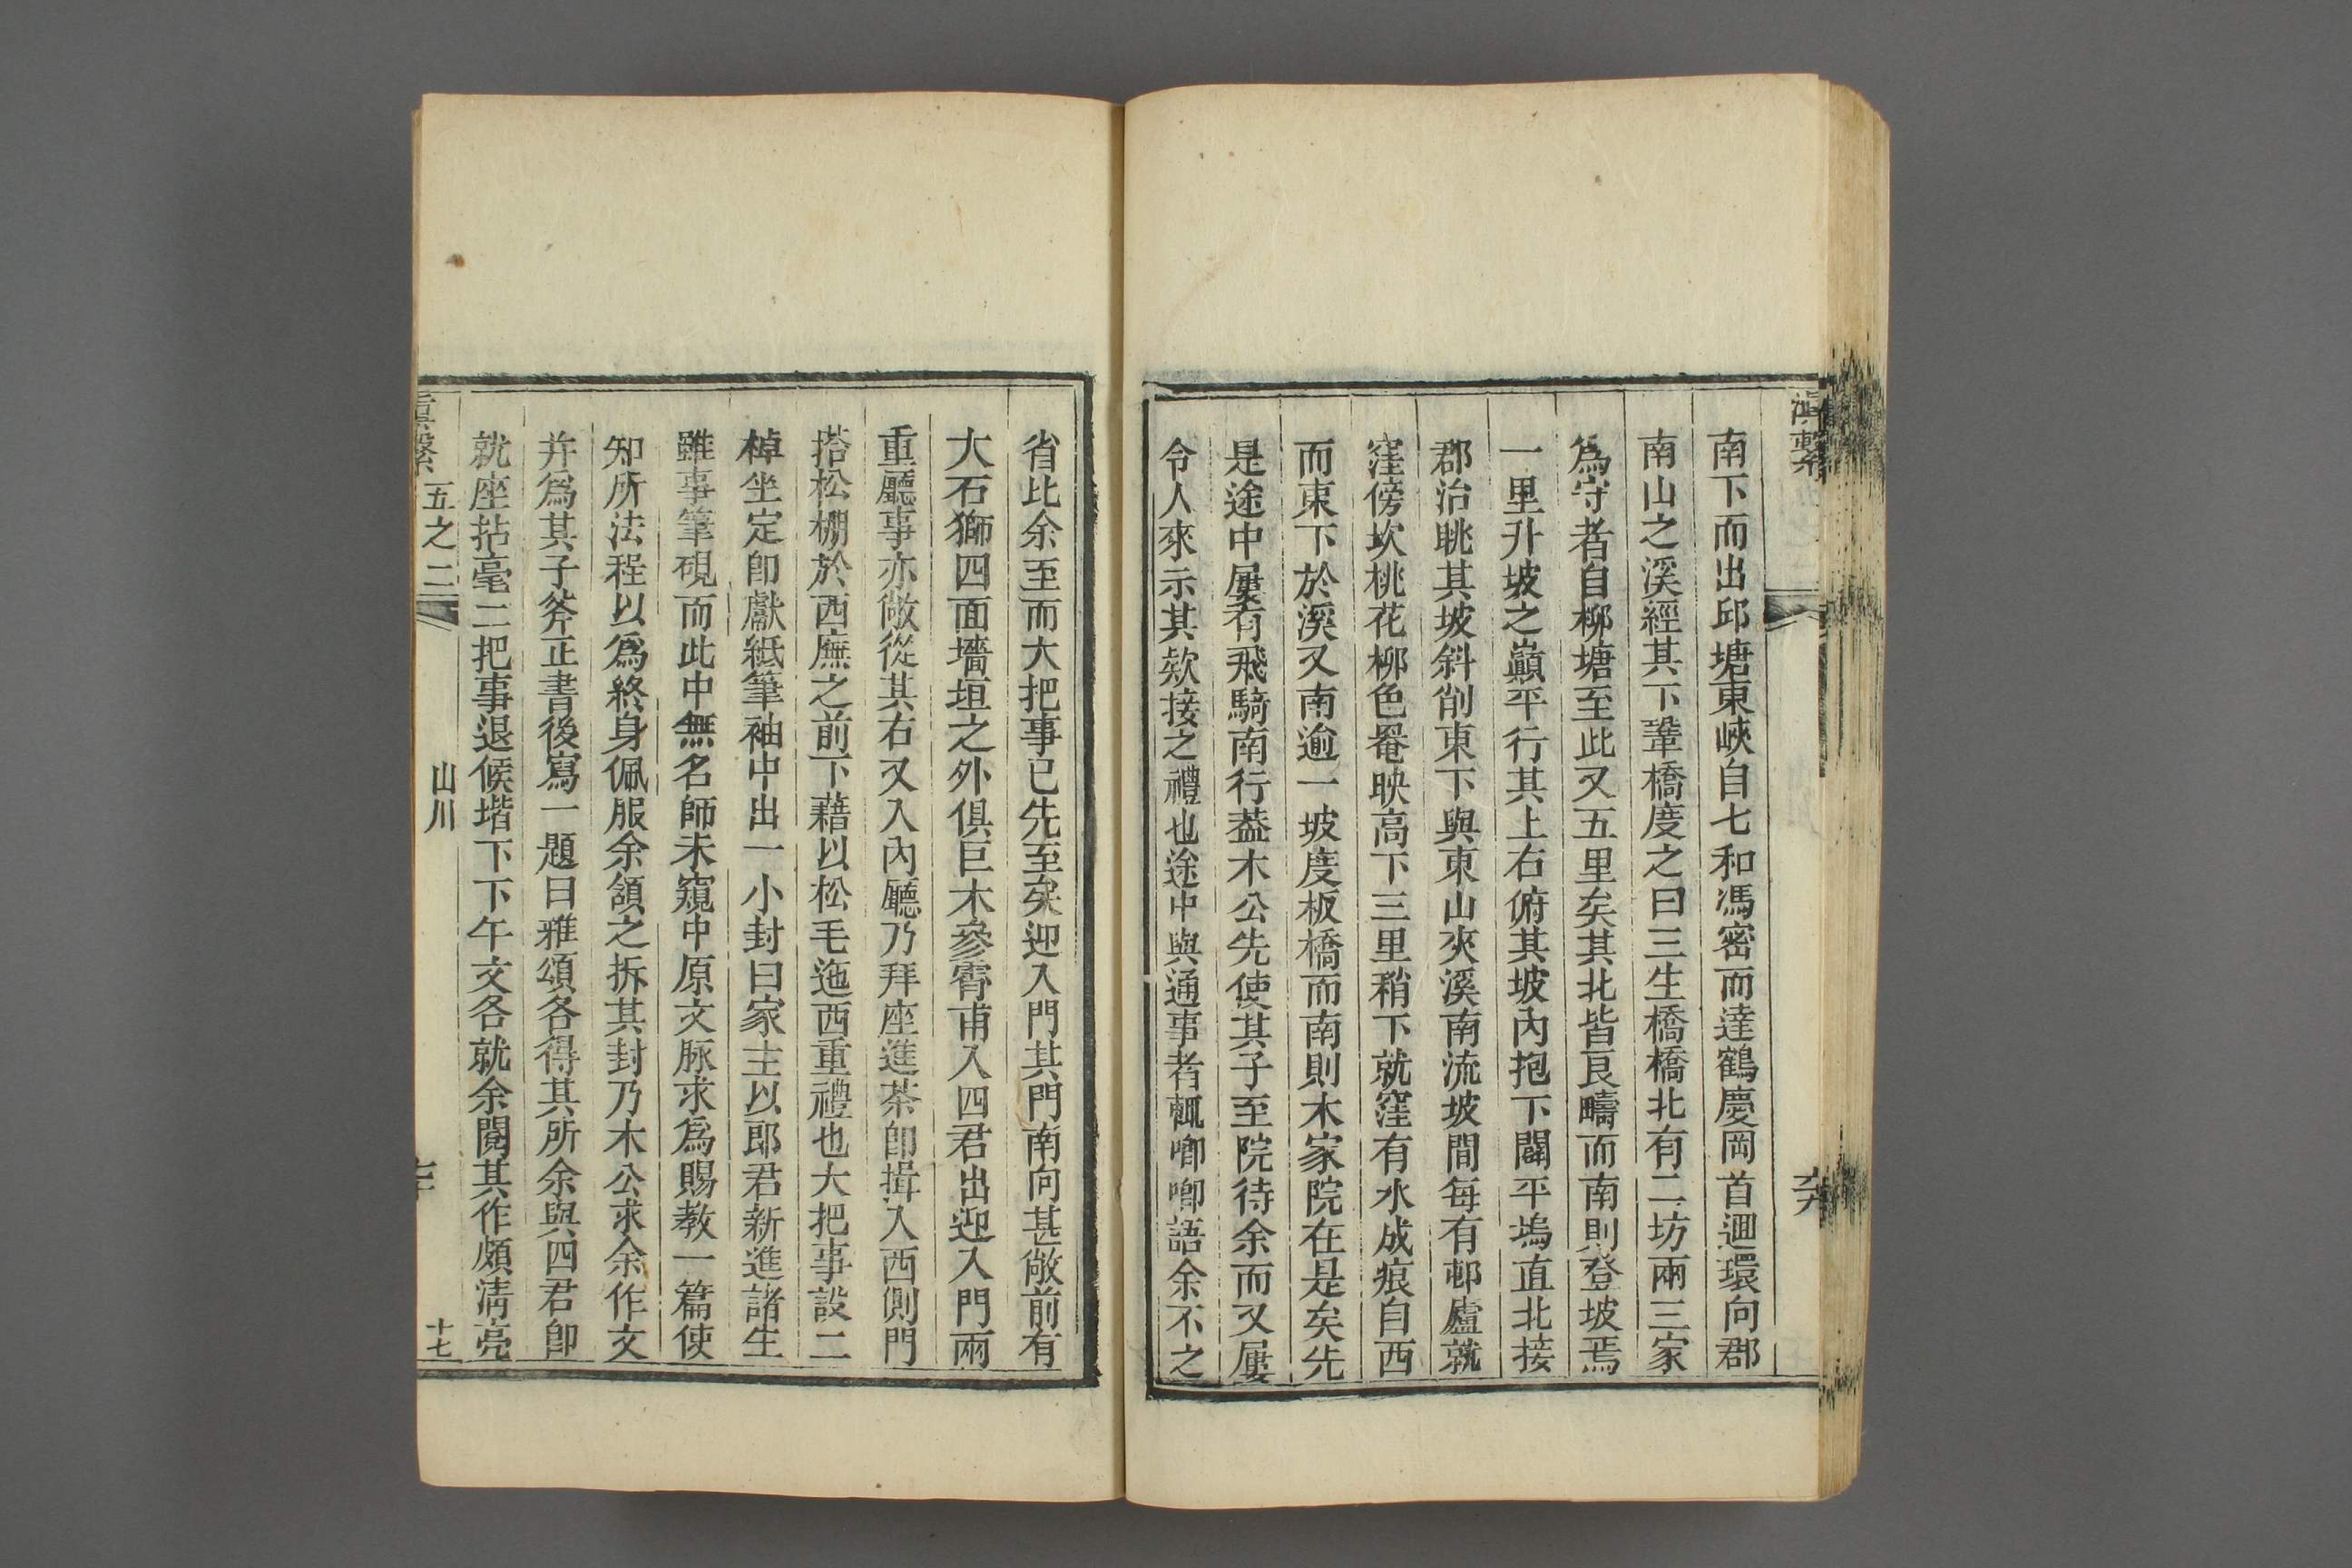 滇繫
南下而出邱塘東峽自七和馮密而達鶴慶岡首迴環向郡
南山之溪經其下鞏橋度之曰三生橋橋北有二坊兩三家
爲守者自柳塘至此又五里矣其北皆良疇而南則登坡焉
一里升坡之巔平行其上右俯其坡內抱下闢平塢直北接
郡治眺其坡斜削東下與東山夾溪南流坡間每有邨廬就
窪傍坎桃花柳色罨映高下三里稍下就窪有水成痕自西
而東下於溪又南逾一坡度板橋而南則木家院在是矣先
是途中屢有飛騎南行葢木公先使其子至院待余而又屢
令人來示其欵接之禮也途中與通事者輒唧唧語余不之
省比余至而大把事已先至矣迎入門其門南向甚敞前有
大石獅四面墻垣之外俱巨木參霄甫入四君出迎入門兩
重廳事亦敞從其右又入內廳乃拜座進茶卽揖入西側門
搭松棚於西廡之前下藉以松毛迤西重禮也大把事設二
棹坐定卽獻紙筆袖中出一小封曰家主以郎君新進諸生
雖事筆硯而此中無名師未窺中原文脉求爲賜教一篇使
知所法程以爲終身佩服余頷之拆其封乃木公求余作文
并爲其子斧正書後寫一題曰雅頌各得其所余與四君卽
就座拈毫二把事退候堦下下午文各就余閱其作頗淸亮
滇繫 五之二 山川 十七